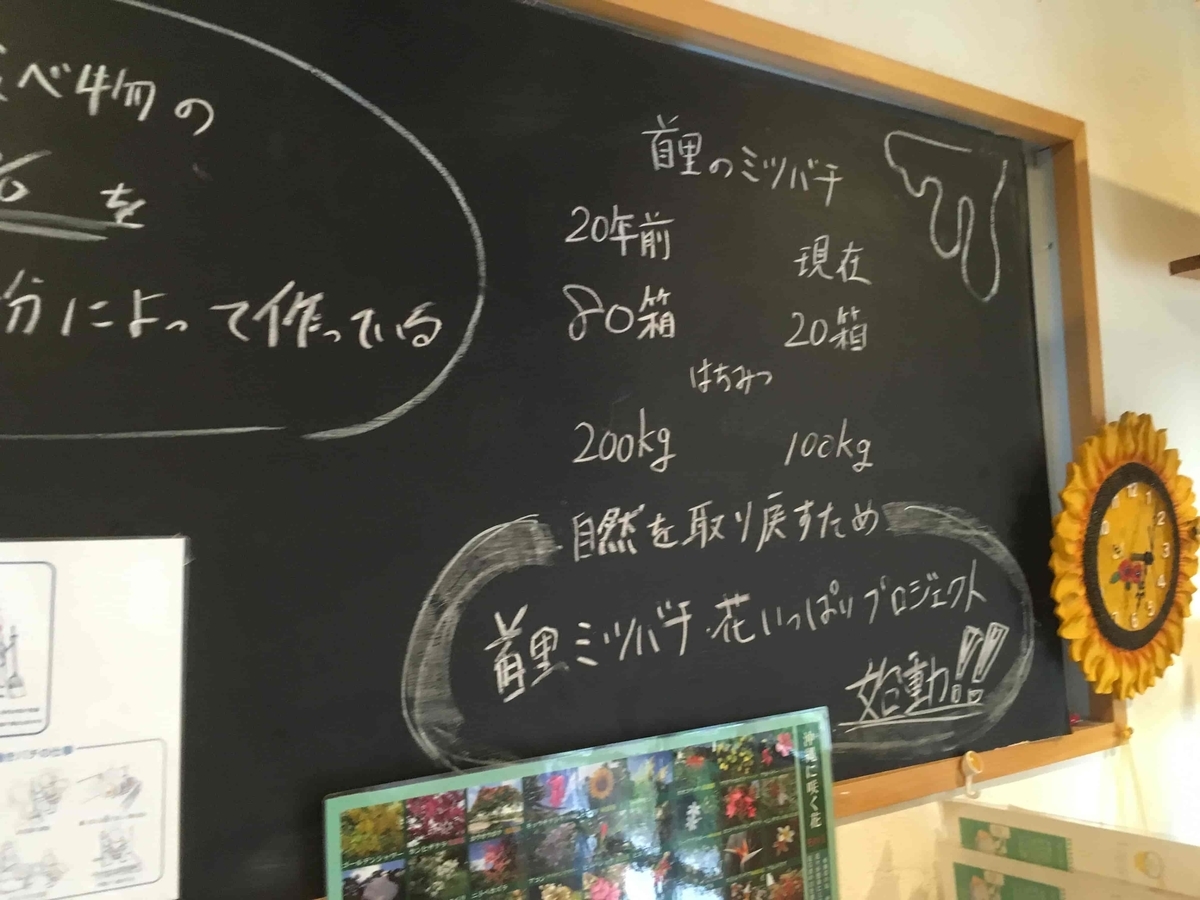 べ物の
を
分によって作っている
首里のミツバチ
20年前 現在
80箱 20箱
はちみつ
200kg 100kg
自然を取り戻すため
首里ミツバチ・花いっぱいプロジェクト
始動!!
バチの仕事
沖縄に咲く花